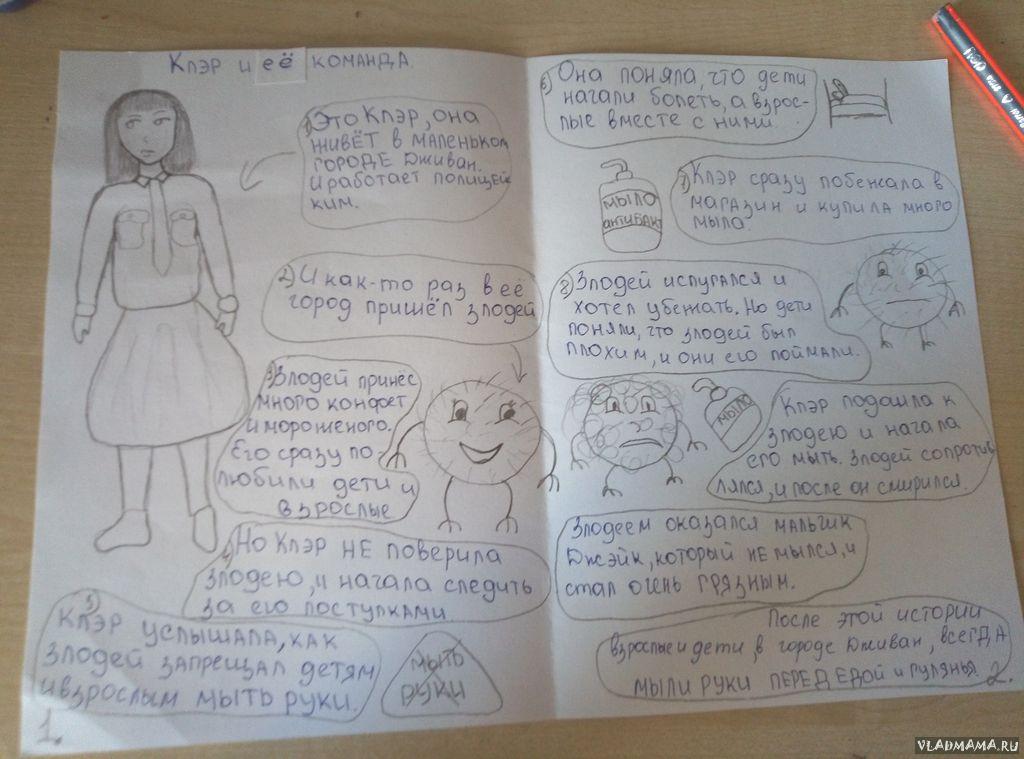 Клэр и её команда.
1) Это Клэр, она
живёт в маленьком
городе Дживан.
И работает полицей
ким.
2) И как-то раз в её
город пришёл злодей
3) Злодей принёс
много конфет
и мороженого.
Его сразу по-
любили дети и
взрослые
4) Но Клэр не поверила
злодею, и начала следить
за его поступками.
5)
Клэр услышала, как
злодей запрещал детям
и взрослым мыть руки.
мыть
руки
1.
6) Она поняла, что дети
начали болеть, а взрос-
лые вместе с ними.
мыло
антибакт
7) Клэр сразу побежала в
магазин и купила много
мыла.
8) Злодей испугался и
хотел убежать. Но дети
поняли, что злодей был
плохим, и они его поймали.
мыло
Клэр подошла к
злодею и начала
его мыть. Злодей сопротив
лялся, и после он смирился.
Злодеем оказался мальчик
Джэйк, который не мылся, и
стал очень грязным.
После этой истории
взрослые и дети в городе Дживан, всегда
мыли руки перед едой и гулянья.
2.
VLADMAMA.RU